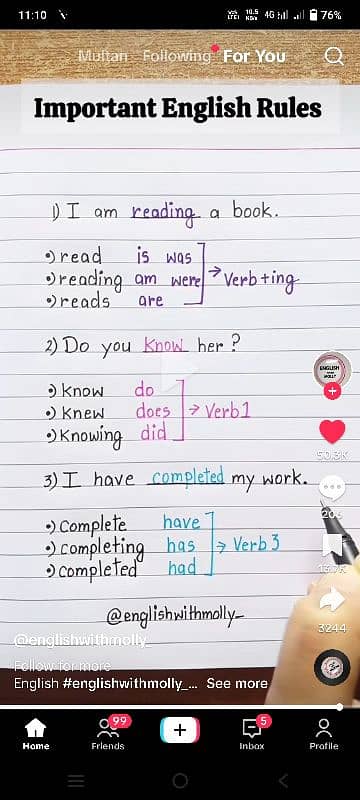 11:10
Vo)) LTE1 10.5 KB/s 4G 76%
Multan Following For You
Important English Rules
1) I am reading a book.
read is was
reading am were → Verb+ing
reads are
2) Do you Know her?
know do
knew does → Verb1
Knowing did
3) I have completed my work.
Complete have
completing has → Verb 3
completed had
@englishwithmolly_
ENGLISH WITH MOLLY
50.3K
206
3244
@englishwithmolly_
Follow for more
English #englishwithmolly_... See more
99
5
Home Friends Inbox Profile